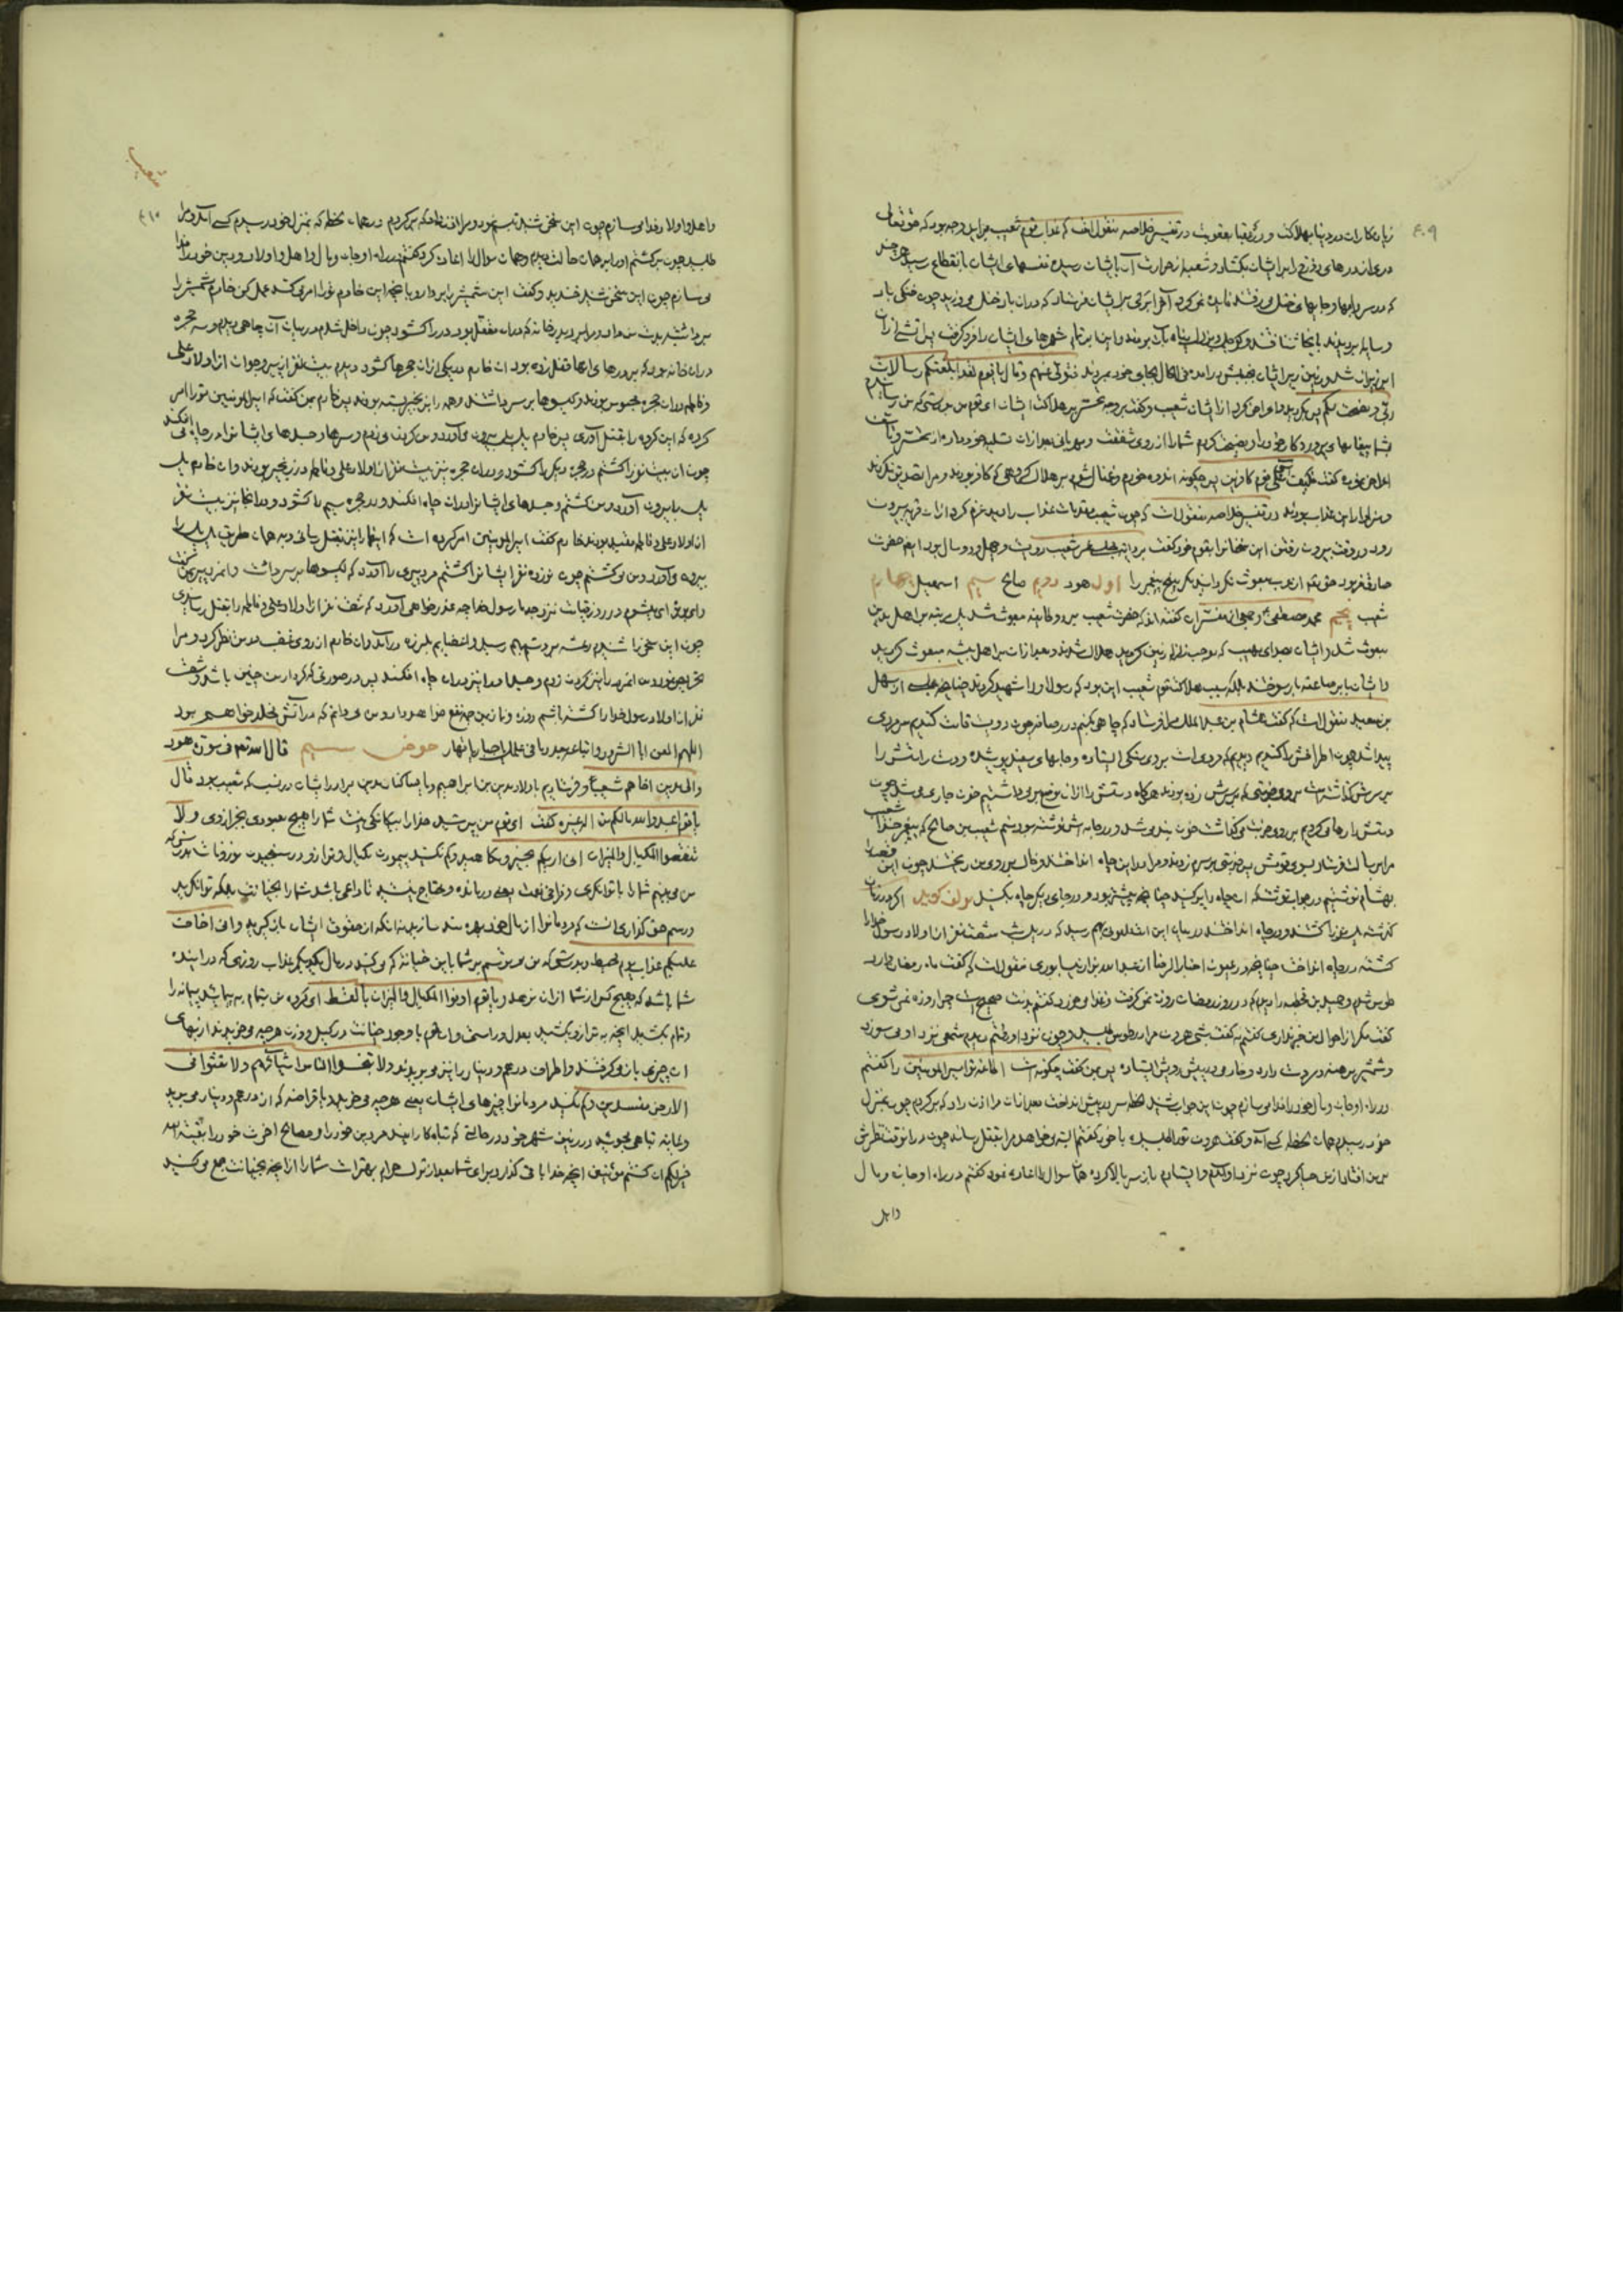 ۴۰۹
زیان‌کاران در دنیا بهلاکت و در عقبا بعقوبت در تفسیر خلاصه منقول است که عذاب قوم شعیب براین وجه بود که حق تعالی
دری از درهای دوزخ را بر ایشان بگشاد و شعبه از حرارت آن بایشان رسیده نفسهای ایشان بانقطاع رسید هر چند
که در سردابها و جایهای خنک می رفتند فایده نمی کرد آخر ابری بر ایشان فرستاد که در آن باد خنک می وزید چون خنکی باد
و سایه بدیدند بآنجا شتافتند
ابر نیران شد و زمین زیر ایشان بجنبش در آمد فی الحال بجای خود بمردند فتولی عنهم و قال یا قوم لقد ابلغتکم رسالات
ربی و نصحت لکم پس اعراض کرد از ایشان شعیب و گفت بر وجه تحسر بر هلاکت ایشان ای قوم من بدرستی که من رسانیدم
بشما پیغامهای پروردگار خود را و نصیحت کردم شما را از روی شفقت و مهربانی بعد از آن تسلیه خود داده از تحسر و تأسف
اعراض نموده گفت فکیف آسی علی قوم کافرین پس چگونه اندوه خورم و غمناک شوم بر هلاک گروهی که کافر بودند و مرا تصدیق نکردند
و سزاوار این عذاب بودند در تفسیر خلاصه منقول است که چون شعیب مقدمات عذاب را دید عزم کرد از آن قریه بیرون
رود در وقت بیرون رفتن این سخنانرا بقوم خود گفت عمر شعیب دویست و چهل و دو سال بود امام حضرت
صادق فرمود حق تعالی از عرب مبعوث نگردانید مگر پنج پیغمبر را اول هود دویم صالح سیم اسمعیل چهارم
شعیب پنجم محمد مصطفی و جمعی از مفسران گفته اند که حضرت شعیب بر دو طایفه مبعوث شد یک مرتبه بر اهل مدین
مبعوث شد و ایشان بصدای مهیب که موجب زلزله زمین گردید هلاک شدند و بعد از آن بر اهل بیشه مبعوث گردید
و ایشان بابر صاعقه بار سوختند بلکه سبب هلاکت قوم شعیب این بود که رسول او را شهید کردند چنانچه علی از سهل
بن سعید منقول است که گفت هشام بن عبد الملک مرا فرستاد که چاهی بکنم در رصافه چون دویست قامت کندیم سر مردی
پیدا شد چون اطرافش را کندیم دیدیم که مردی است بر روی سنگی ایستاده و جامهای سفید پوشیده و دست راستش را
بر سرش گذاشته است بر روی ضربتی که بر سرش زده بودند هر گاه دستش را از آن موضع بر می داشتیم خون جاری می شد چون
دستش را رها می کردیم بر روی ضربت می گذاشت خون بند می شد و در جامه اش نوشته بود منم شعیب بن صالح که پیغمبر خدا شعیب
مرا برسالت فرستاد بسوی قومش پس ضربتی بر سرم زدند و مرا در این چاه انداختند و خاک بر روی من ریختند چون این قصه را
بهشام نوشتیم در جواب نوشت که آن چاه را پر کنید چنانچه پیشتر بود و در جای دیگر چاه بکنید مولف گوید اگر در زمان
گذشته یک عزیز را کشتند و در چاه انداختند در میان این امت ملعونی بهم رسید که در یک شب شصت نفر از اولاد رسول خدا را
کشته در چاه انداخت چنانچه در عیون اخبار الرضا از عبد الله بزاز نیسابوری منقول است که گفت ماه رمضان وارد
طوس شدم و حمید بن قحطبه را دیدم که در روز رمضان روزه نمی گرفت و غذا می خورد گفتم بدنت صحیح است چرا روزه نمی شوی
گفت مگر از احوال من خبر نداری گفتم نه گفت شبی هرون مرا در طوس طلبید و چون نزد او رفتم دیدم شمعی نزد او می سوزد
و شمشیر برهنه در دست دارد و خادمی در پیش رویش ایستاده پس بمن گفت چگونه است اطاعت تو امیر المؤمنین را گفتم
در راه او جان و مال خود را فدا می سازم چون این جواب شنید لحظه سر در پیش انداخت بعد از آن مرا اذن داد که برگردم چون بمنزل
خود رسیدم همان لحظه کسی آمد و گفت هرون تو را طلبیده با خود گفتم البته می خواهد مرا بقتل رساند چون در آن وقت نظرش
بر من افتاد از من حیا کرد چون نزد او آمدم و ایستادم باز سر بالا کرده همان سوال را اعاده نمود گفتم در راه او جان و مال
و اهل
شعیب
۴۱۰
و اهل و اولاد فدا می سازم چون این سخن شنید تبسم نمود و مرا اذن داد که برگردم و همان لحظه که بمنزل خود رسیدم کسی آمد و مرا
طلبید چون برگشتم او را بر همان حالت دیدم و همان سوال را اعادت کرد گفتم در راه او جان و مال و اهل و اولاد و دین خود را فدا
می سازم چون این سخن شنید خندید و گفت این شمشیر را بردار و بآنچه این خادم تو را امر می کند عمل کن خادم شمشیر را
برداشته بدست من داد و مرا برد بدر خانه که در آن مقفل بود در را گشود چون داخل شدم در میان آن چاهی دیدم و سه حجره
در آن خانه بود که بر درهای آنها قفل زده بود آن خادم در یکی از آن حجرها گشود دیدم بیست نفر از پیر و جوان از اولاد علی
و فاطمه در آن حجره محبوس بودند و گیسوها بر سر داشتند و همه را بزنجیر بسته بودند پس خادم بمن گفت که امیر المؤمنین تو را امر
کرده که این گروه را بقتل آوری پس خادم یک یک بیرون می آورد و من گردن می زدم و سرها و جسدهای ایشانرا در چاه می افکند
چون آن بیست نفر را کشتم در حجره دیگر را گشود و در آن حجره نیز بیست نفر از اولاد علی و فاطمه در زنجیر بودند و آن خادم یک
یک را بیرون آورد و من کشتم و جسدهای ایشانرا در آن چاه افکند و در حجره سیم را گشود و در آنجا نیز بیست نفر
از اولاد علی و فاطمه مقید بودند خادم گفت امیر المؤمنین امر کرده است که اینها را نیز بقتل رسانی و به همان طریق یک یک را
بیرون می آورد و من می کشتم چون نوزده نفر ایشانرا کشتم مرد پیری را آورد که گیسوها بر سر داشت و آن مرد پیر بمن گفت
وای بر تو ای میشوم در روز قیامت نزد جد ما رسول خدا چه عذر خواهی آورد که شصت نفر از اولاد علی و فاطمه را بقتل رسانیدی
چون این سخن را شنیدم رعشه بر دستهایم رسید و اعضایم بلرزه در آمد و آن خادم از روی غضب در من نظر کرد و مرا
تحریص نمود من آن مرد پیر را نیز گردن زدم و جسد او را نیز در آن چاه افکند پس در صورتی که کردار من چنین باشد و شصت
نفر از اولاد رسول خدا را کشته باشم روزه و نماز من چه نفع خواهد داد و من می دانم که در آتش مخلد خواهم بود
حوض سیم قال الله تعالی فی سورة هود
و الی مدین اخاهم شعیبا و فرستادیم باولاد مدین بن ابراهیم و یا بساکنان مدین برادر ایشان در نسب که شعیب بود قال
یا قوم اعبدوا الله ما لکم من اله غیره گفت ای قوم من پرستید خدا را بیگانگی نیست شما را هیچ معبودی بجز از وی و لا
تنقصوا المکیال و المیزان انی اریکم بخیر و مکاهید و کم نکنید پیمودن مکیال و ترازو در سنجیدن موزونات بدرستی که
من می بینم شما را با توانگری و فراخی نعمت یعنی درمانده و محتاج نیستید تا داعی باشد شما را بخیانت بلکه توانگرید
و رسم حق گذاری آنست که مردمانرا از مال خود بهره مند سازید نه آنکه از حقوق ایشان باز گیرید و انی اخاف
علیکم عذاب یوم محیط و بدرستی که من می ترسم بر شما باین خیانتی که می کنید در مال یکدیگر عذاب روزی که در آینده
شما باشد که هیچ کس از شما از آن نرهد و یا قوم اوفوا المکیال و المیزان بالقسط ای گروه من تمام بپیمایید پیمانه را
و تمام بکشید آنچه به ترازو بکشید بعدل و راستی و آن قوم با وجود خیانت در کیل و وزن هر چه می خریدند از بهای
آن چیزی باز می گرفتند و اطراف درهم و دینار را نیز می بریدند و لا تبخسوا الناس اشیائهم و لا تعثوا فی
الارض مفسدین و کم نکنید مردمانرا چیزهای ایشان یعنی هر چه می خرید و یا قراضه که از درهم و دینار می برید
و غایت تباهی مجوئید در زمین شهر خود در حالتی که تباه کارانید
خیر لکم ان کنتم مؤمنین آنچه خدا باقی گذارد برای شما بعد از ترک حرام بهتر است شما را از آنچه بخیانت جمع می کنید